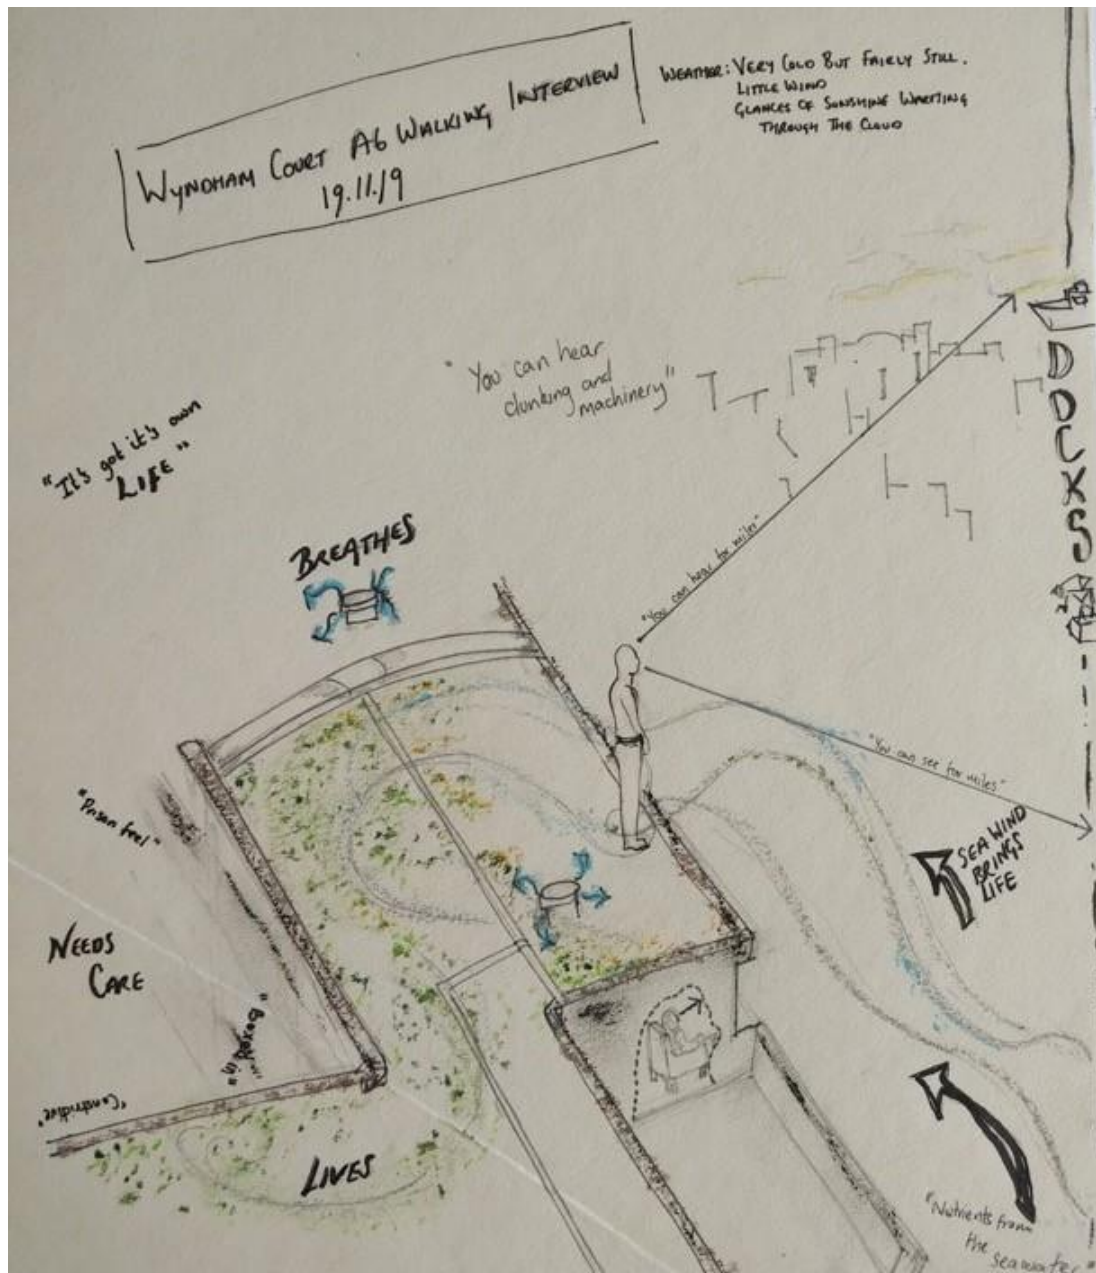 WYNDHAM COURT A6 WALKING INTERVIEW
19.11.19
WEATHER: VERY COLD BUT FAIRLY STILL.
LITTLE WIND
GLANCES OF SUNSHINE WAFTING
THROUGH THE CLOUD
"You can hear
clunking and
machinery"
"It's got it's own
LIFE"
BREATHES
DOCKS
"You can hear for miles"
"You can see for miles"
"Prison feel"
SEA WIND
BRINGS
LIFE
NEEDS
CARE
"Constrictive"
LIVES
"Nutrients from
the seawater"